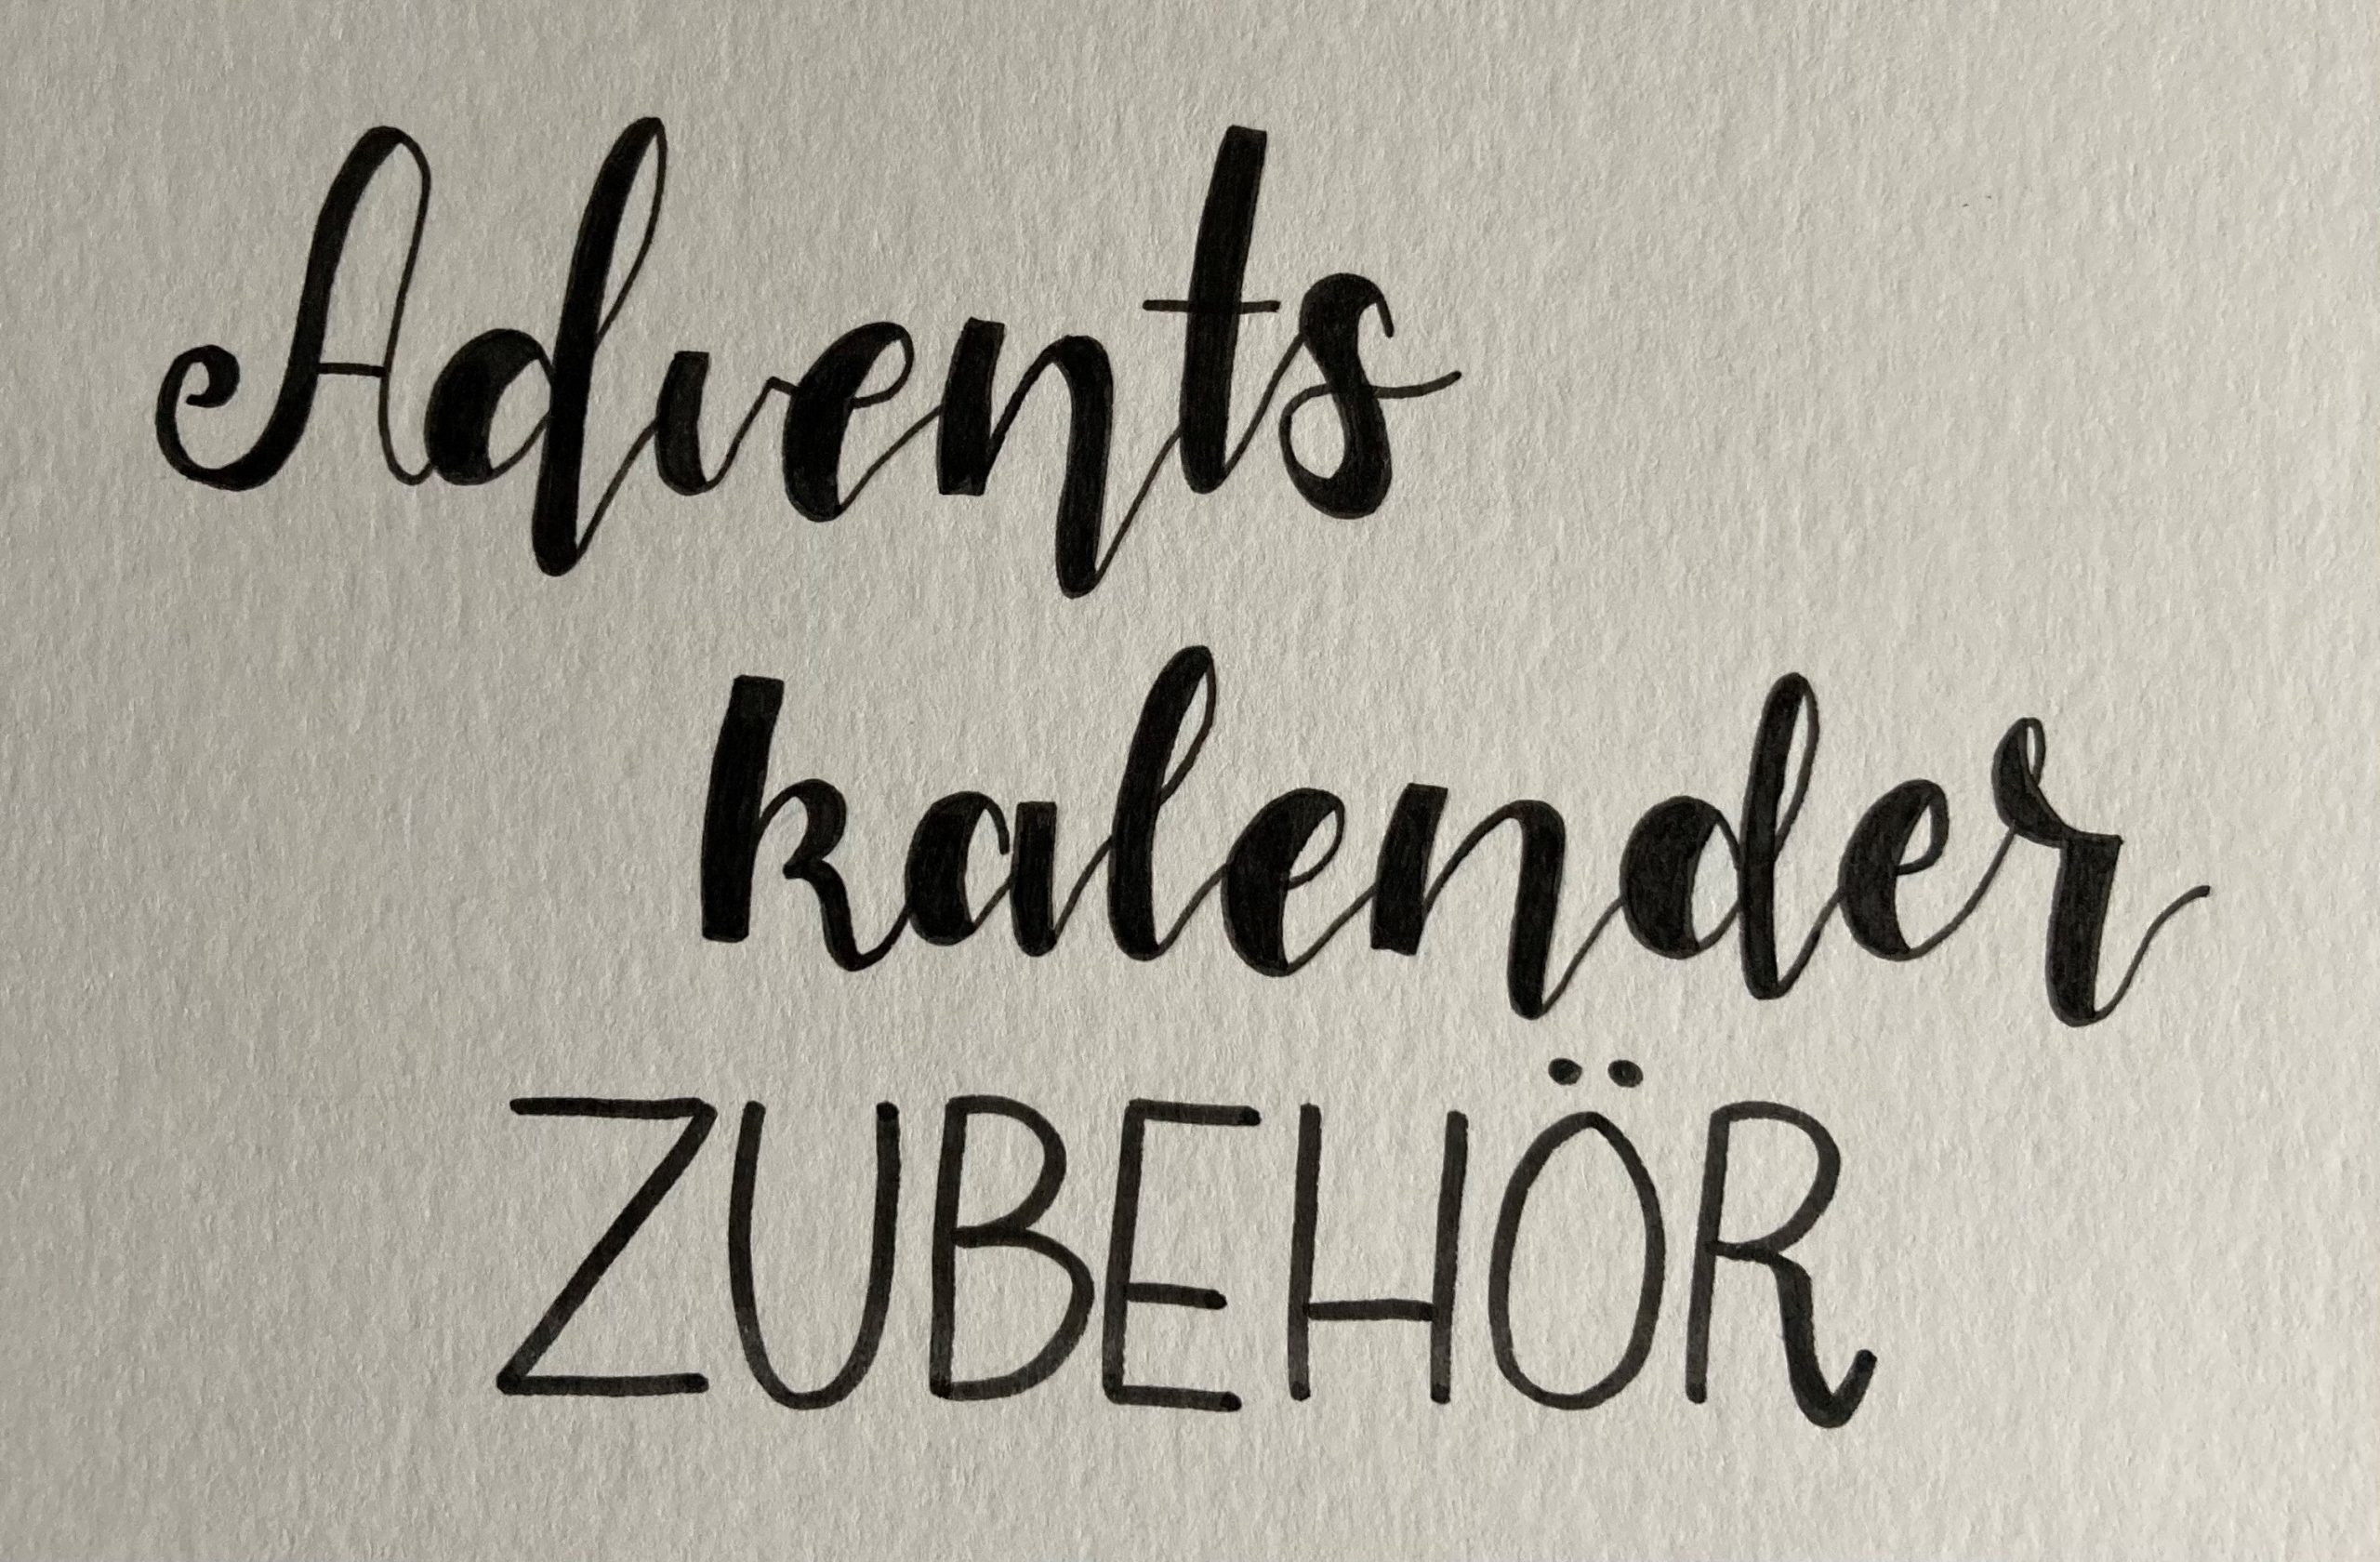 Advents
kalender
ZUBEHÖR